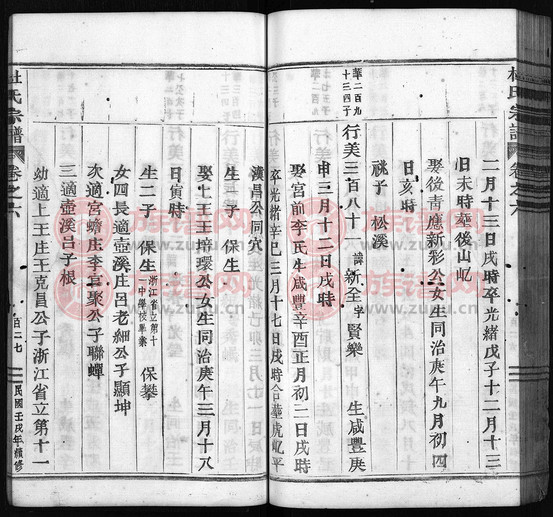 杜氏宗譜
卷之六
二月十三日戌時卒光緒戊子十二月十三
旧未時塟後山屺
娶後青應新彩公女生同治庚午九月初四
日亥時
祧子 松溪
華二百九
十三四子
行美三百八十 諱新全字賢樂 生咸豐庚
申三月十二日戌時
娶宮前李氏生咸豐辛酉正月初二日戌時
卒光緒辛巳三月十七日戌時合塟虎屺平
漢昌公同穴
生子 保生
娶上王王培環公女生同治庚午三月十八
日寅時
生二子 保生 浙江省立第十
一中學校畢業 保攀
女四長適壺溪庄呂老細公子顯坤
次適宮蟾庄李官聚公子聯蟬
三適壺溪呂子根
幼適上王庄王克昌公子浙江省立第十一
杜氏宗譜
卷之六
百二七
民國壬戌年續修
族譜网
www.zupu.cn